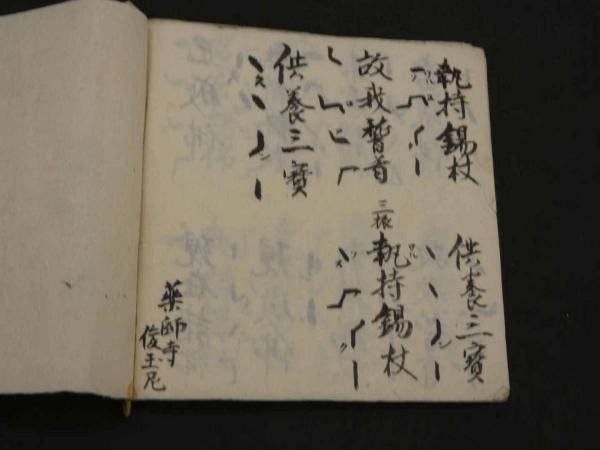 執持錫杖 供養三寶
故我稽首 三振 執持錫杖
供養三寶
薬師寺
俊玉尼